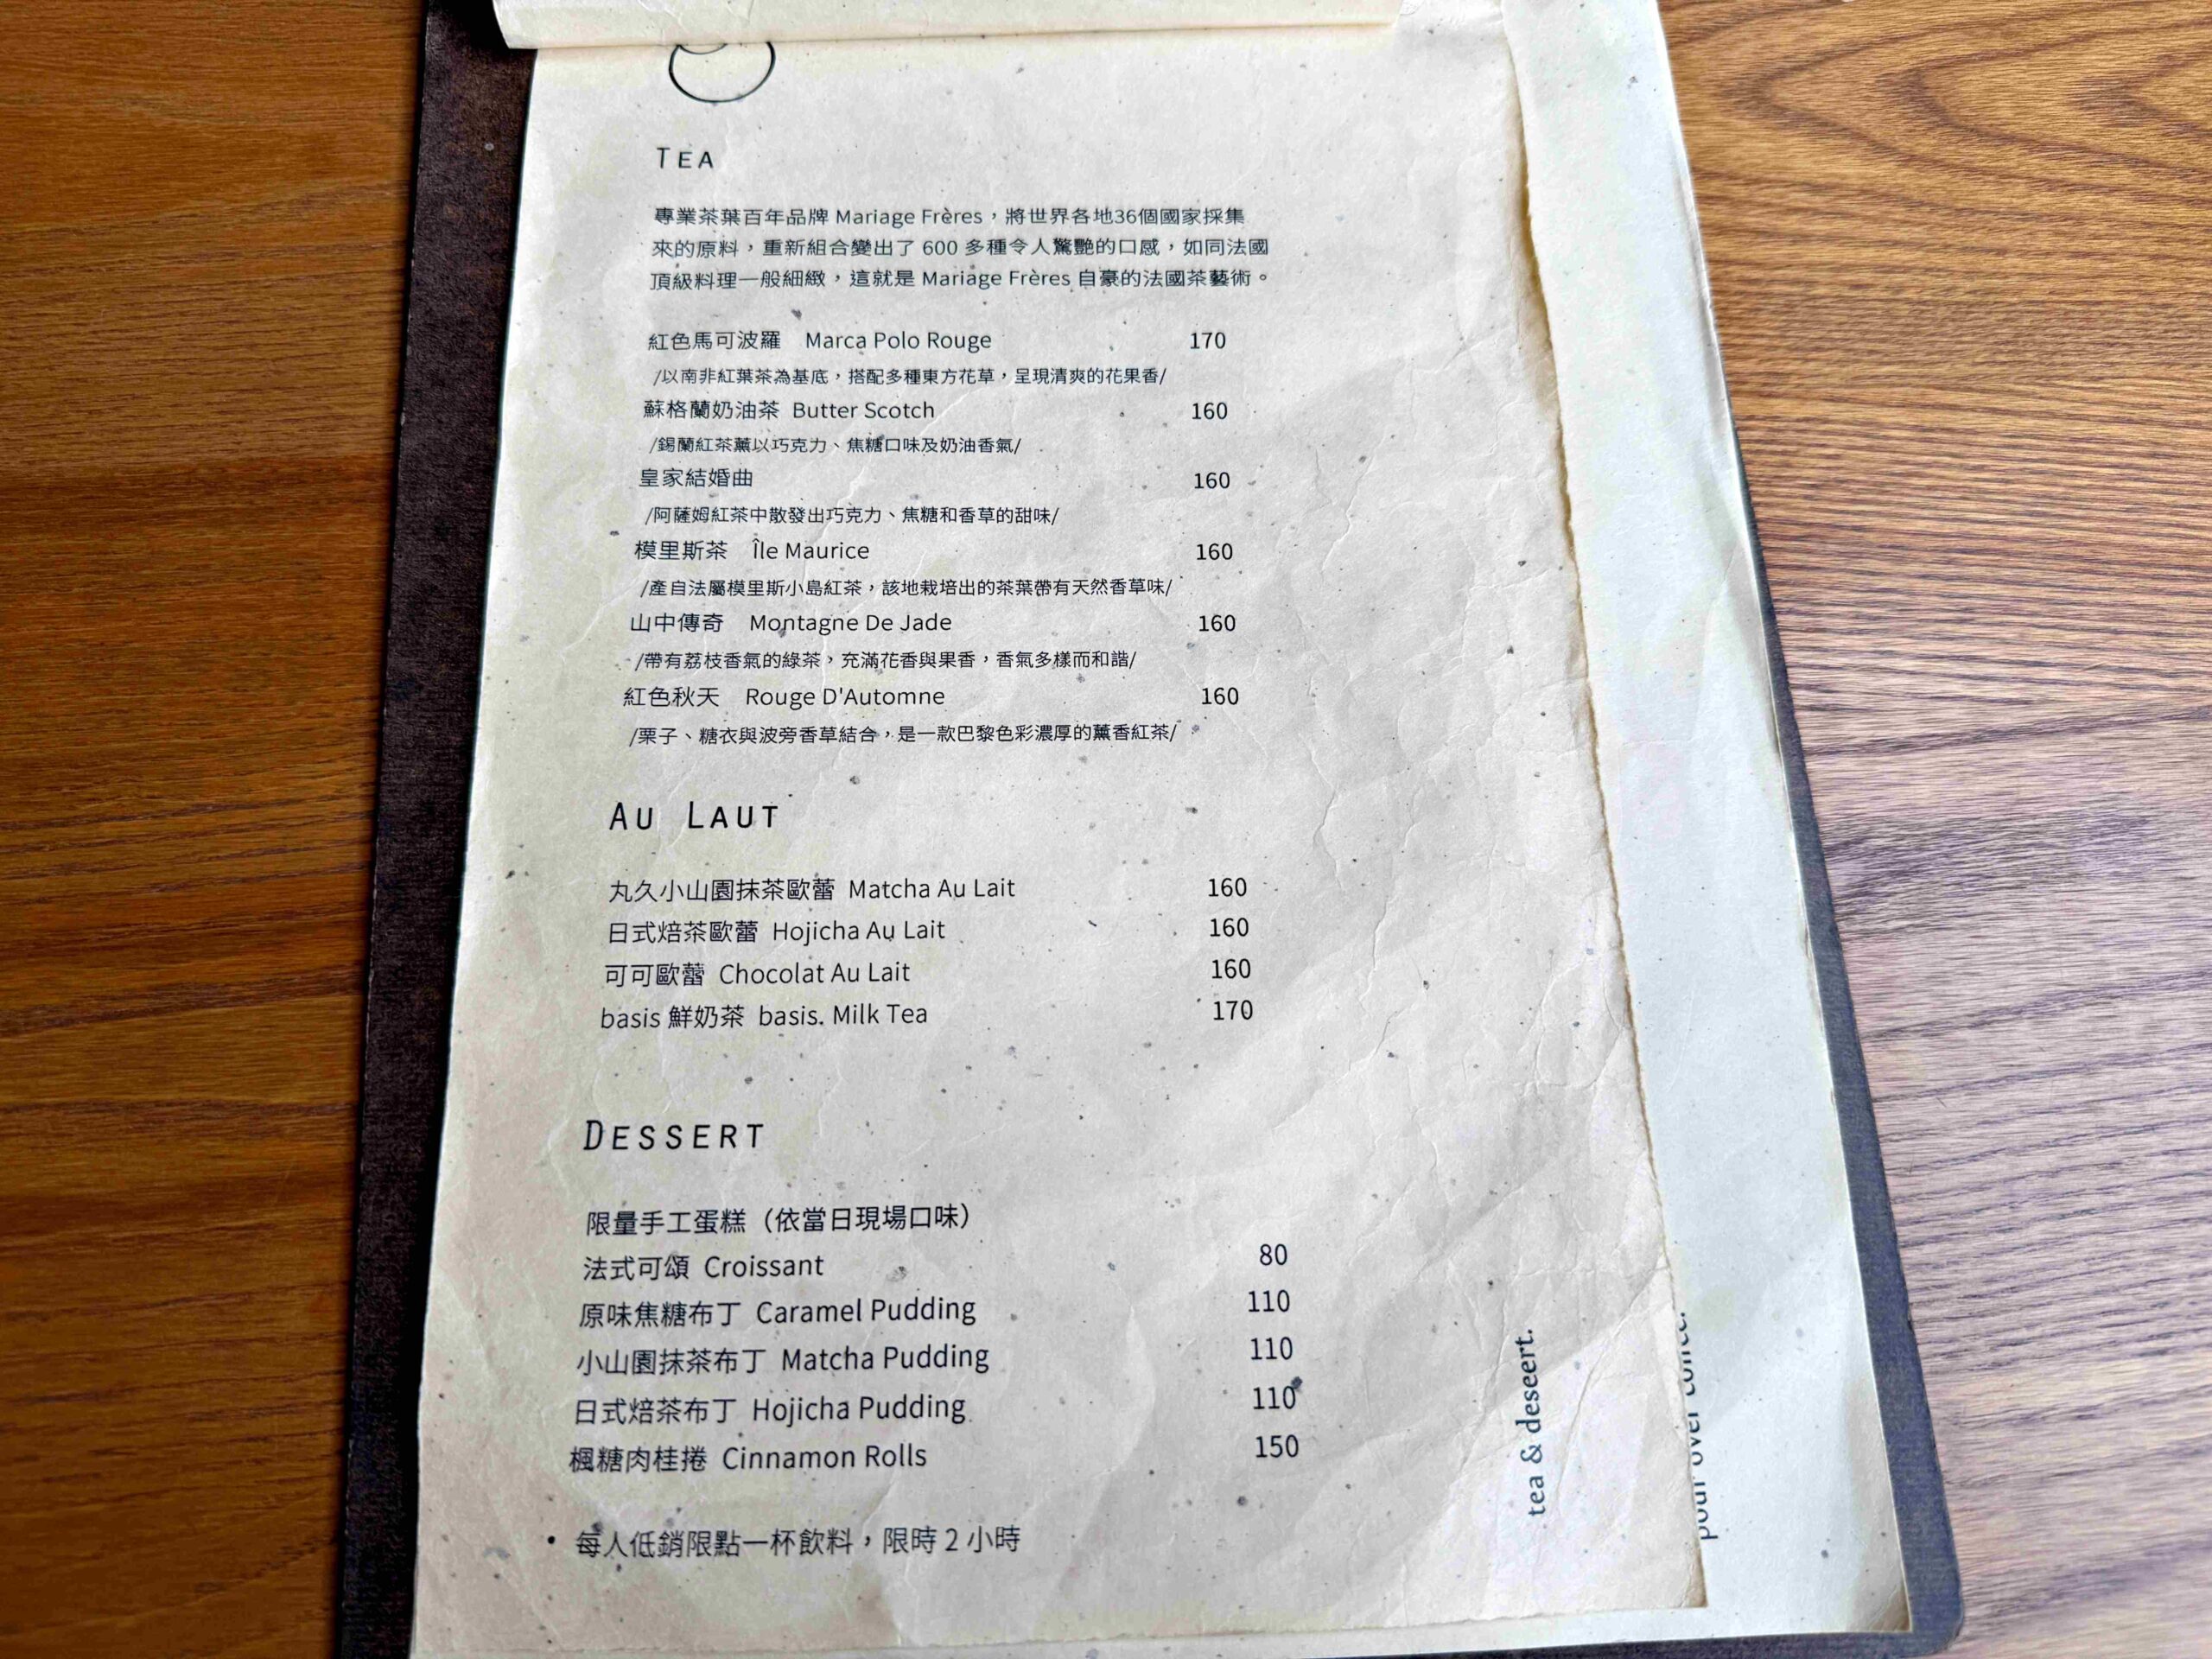 TEA
專業茶葉百年品牌 Mariage Frères，將世界各地36個國家採集
來的原料，重新組合變出了 600 多種令人驚艷的口感，如同法國
頂級料理一般細緻，這就是 Mariage Frères 自豪的法國茶藝術。
紅色馬可波羅 Marca Polo Rouge 170
/以南非紅葉茶為基底，搭配多種東方花草，呈現清爽的花果香/
蘇格蘭奶油茶 Butter Scotch 160
/錫蘭紅茶薰以巧克力、焦糖口味及奶油香氣/
皇家結婚曲 160
/阿薩姆紅茶中散發出巧克力、焦糖和香草的甜味/
模里斯茶 Île Maurice 160
/產自法屬模里斯小島紅茶，該地栽培出的茶葉帶有天然香草味/
山中傳奇 Montagne De Jade 160
/帶有荔枝香氣的綠茶，充滿花香與果香，香氣多樣而和諧/
紅色秋天 Rouge D'Automne 160
/栗子、糖衣與波旁香草結合，是一款巴黎色彩濃厚的薰香紅茶/
AU LAUT
丸久小山園抹茶歐蕾 Matcha Au Lait 160
日式焙茶歐蕾 Hojicha Au Lait 160
可可歐蕾 Chocolat Au Lait 160
basis 鮮奶茶 basis. Milk Tea 170
DESSERT
限量手工蛋糕（依當日現場口味）
法式可頌 Croissant 80
原味焦糖布丁 Caramel Pudding 110
小山園抹茶布丁 Matcha Pudding 110
日式焙茶布丁 Hojicha Pudding 110
楓糖肉桂捲 Cinnamon Rolls 150
• 每人低銷限點一杯飲料，限時 2 小時
tea & deseert.
pour over coffee.